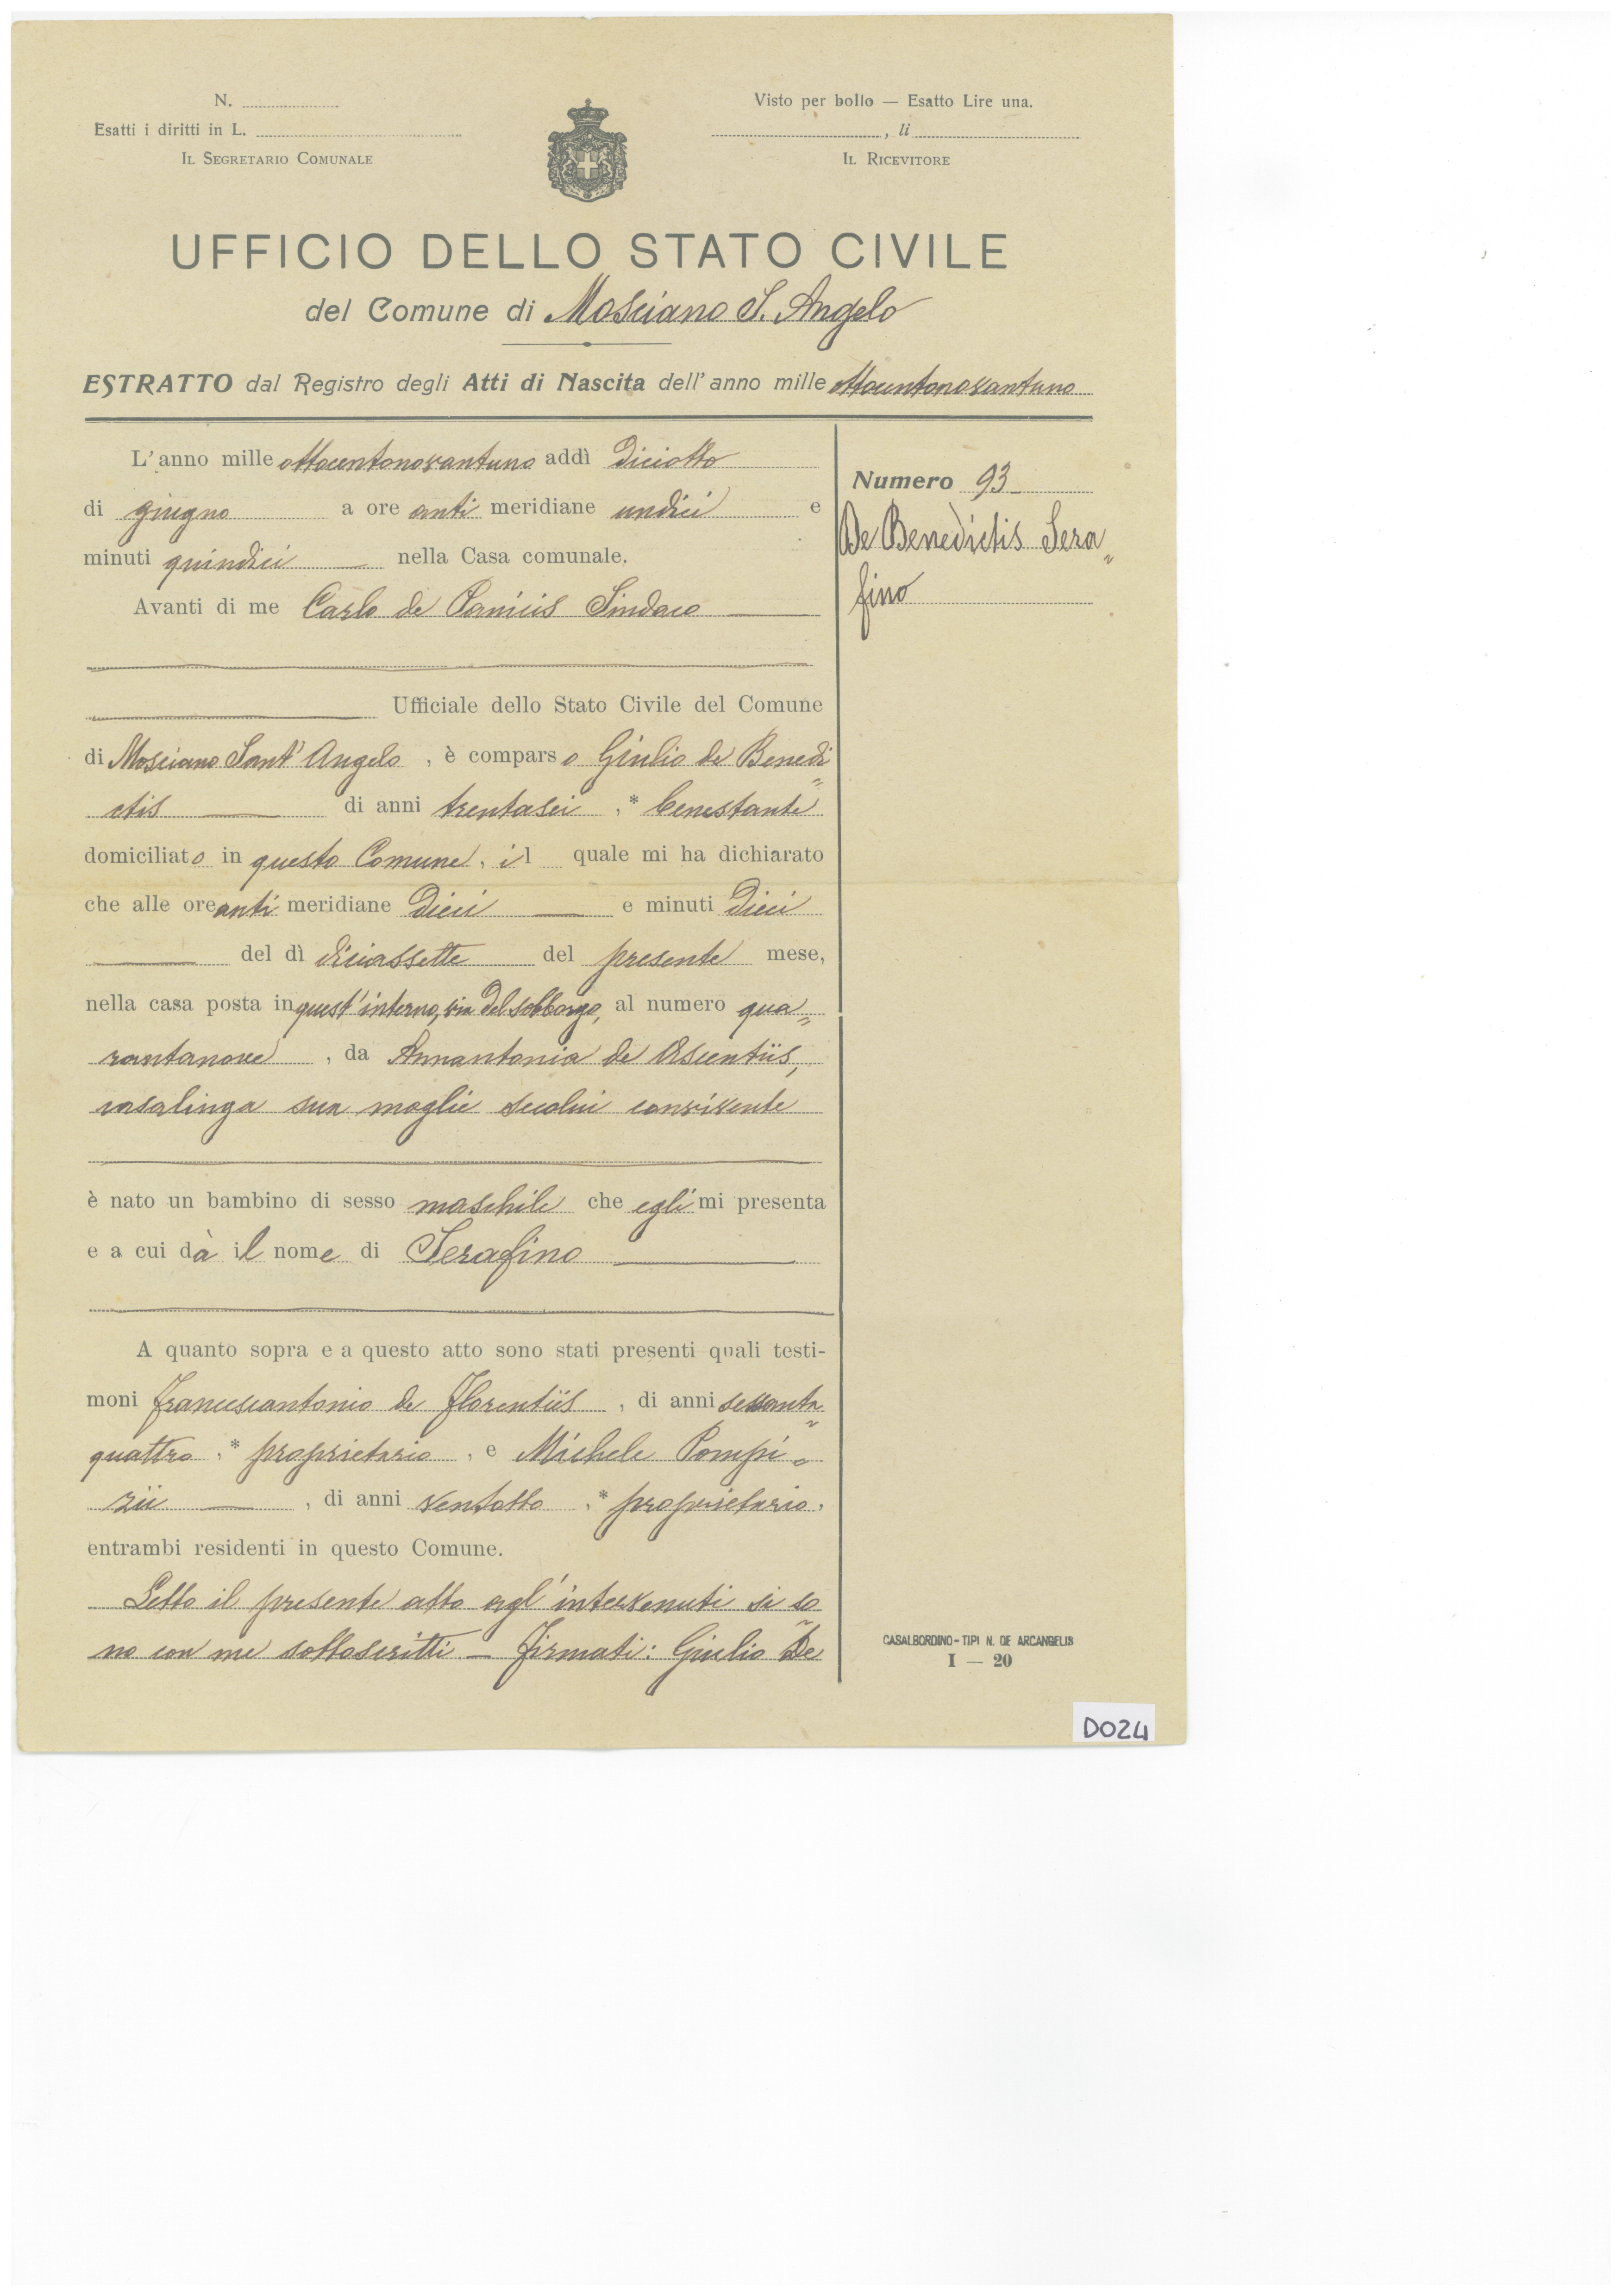 N.
Esatti i diritti in L.
IL SEGRETARIO COMUNALE
Visto per bollo — Esatto Lire una.
, li
IL RICEVITORE
UFFICIO DELLO STATO CIVILE
del Comune di Mosciano S. Angelo
ESTRATTO dal Registro degli Atti di Nascita dell'anno mille ottocentonovantuno
L'anno mille ottocentonovantuno addì diciotto
di giugno a ore anti meridiane undici e
minuti quindici nella Casa comunale.
Avanti di me Carlo de Sindaco
Ufficiale dello Stato Civile del Comune
di Mosciano Sant'Angelo, è comparso Giulio de Benedi=
ctis di anni trentasei, * benestante
domiciliato in questo Comune, il quale mi ha dichiarato
che alle ore anti meridiane dieci e minuti dieci
del dì diciassette del presente mese,
nella casa posta in quest'interno, via del sobborgo, al numero qua=
rantanove, da Annantonia de Ascentiis,
casalinga sua moglie secolui convivente
è nato un bambino di sesso maschile che egli mi presenta
e a cui dà il nome di Serafino
A quanto sopra e a questo atto sono stati presenti quali testi-
moni Francescantonio de Florentiis, di anni sessanta=
quattro, * proprietario, e Michele Pompi=
zii, di anni ventotto, * proprietario,
entrambi residenti in questo Comune.
Letto il presente atto agl'intervenuti si so=
no con me sottoscritti — Firmati: Giulio De
Numero 93
De Benedictis Sera=
fino
CASALBORDINO - TIPI N. DE ARCANGELIS
I — 20
D024